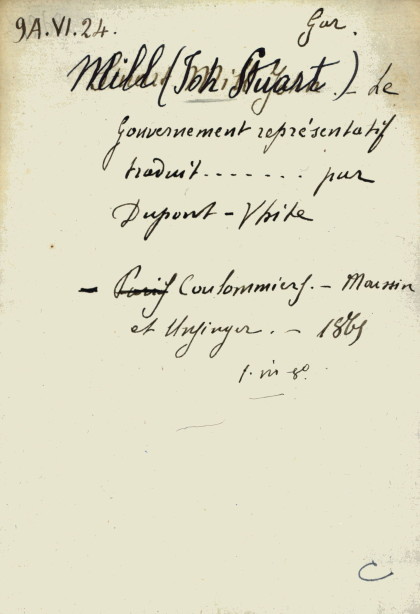 9A.VI.24.
Gar.
Mill (Joh Stuart.) - Le
Gouvernement représentatif
traduit....... par
Dupont-Vhite
- Paris Coulommiers. - Moussin
et Unsinger. - 1865
1. in 8º
C